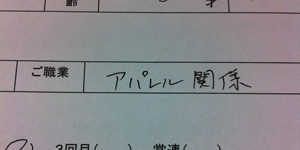 齢
才
ご職業 アパレル関係
3回目( ) 常連( )